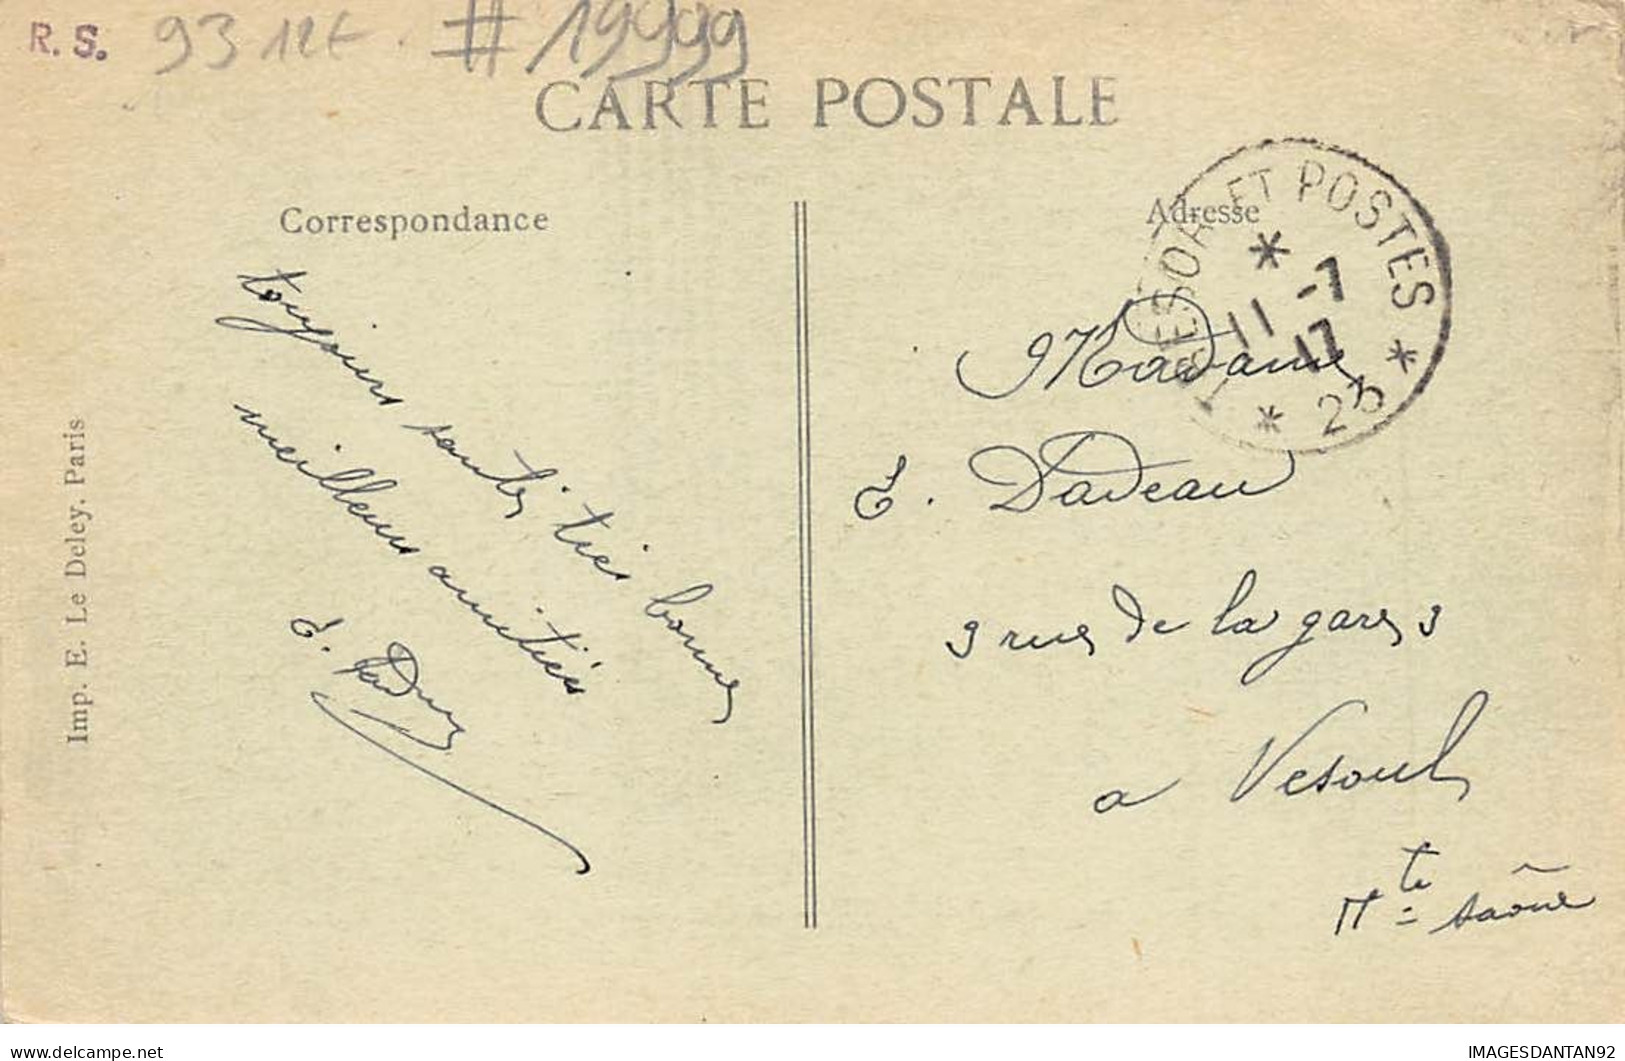 R. S.
93 12t # 19999
CARTE POSTALE
Correspondance
toujours santé très bonne
meilleures amitiés
E.
Imp. E. Le Deley. Paris
Adresse
TRESOR ET POSTES
*
11 -7
17
* 23 *
Madame
E. Dadeau
3 rue de la gare 3
a Vesoul
Hte Saône
delcampe.net
IMAGESDANTAN92